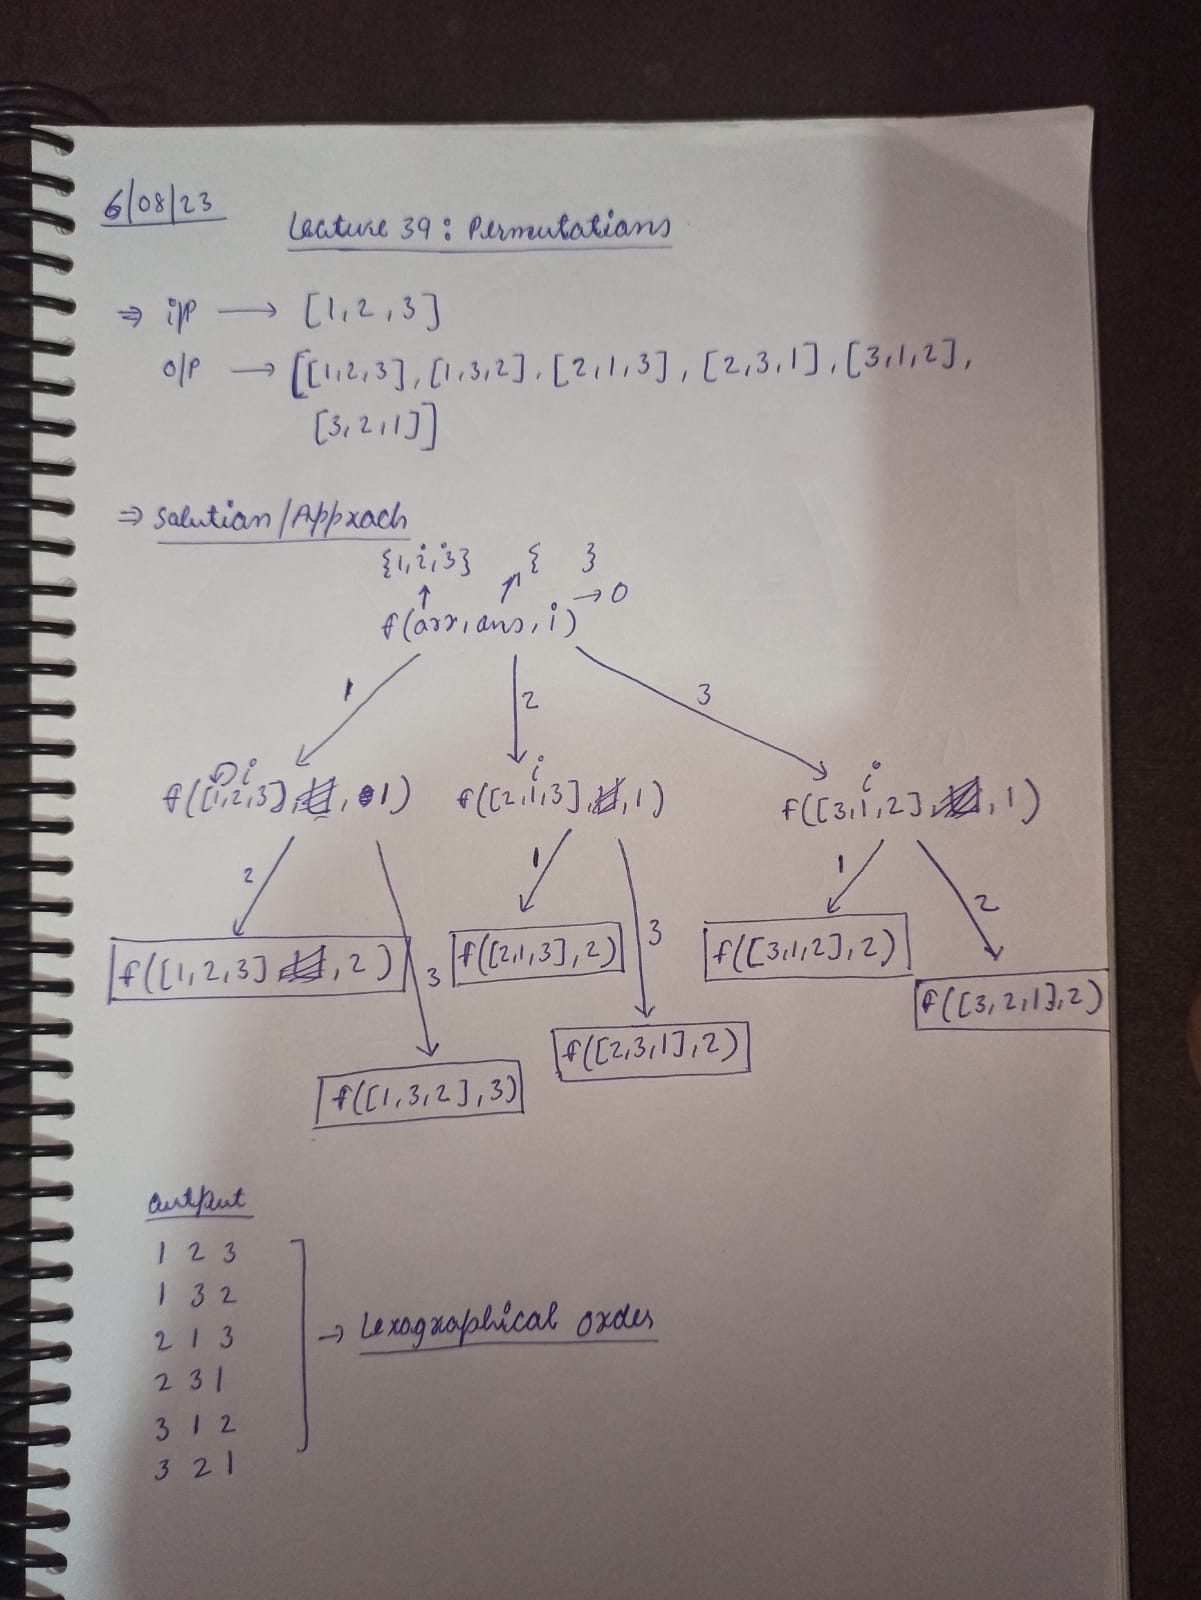 6/08/23
Lecture 39: Permutations
⇒ i/p → [1,2,3]
o/p → [[1,2,3], [1,3,2], [2,1,3], [2,3,1], [3,1,2],
[3,2,1]]
⇒ Solution/Approach
{1,2,3} { }
f(arr,ans,i) → 0
1 2 3
i i i
f([1,2,3], , 1) f([2,1,3], ,1) f([3,1,2], , 1)
2 1 1 2
f([1,2,3] ,2) 3 f([2,1,3],2) 3 f([3,1,2],2)
f([3,2,1],2)
f([2,3,1],2)
f([1,3,2],3)
output
1 2 3
1 3 2
2 1 3 → Lexographical order
2 3 1
3 1 2
3 2 1